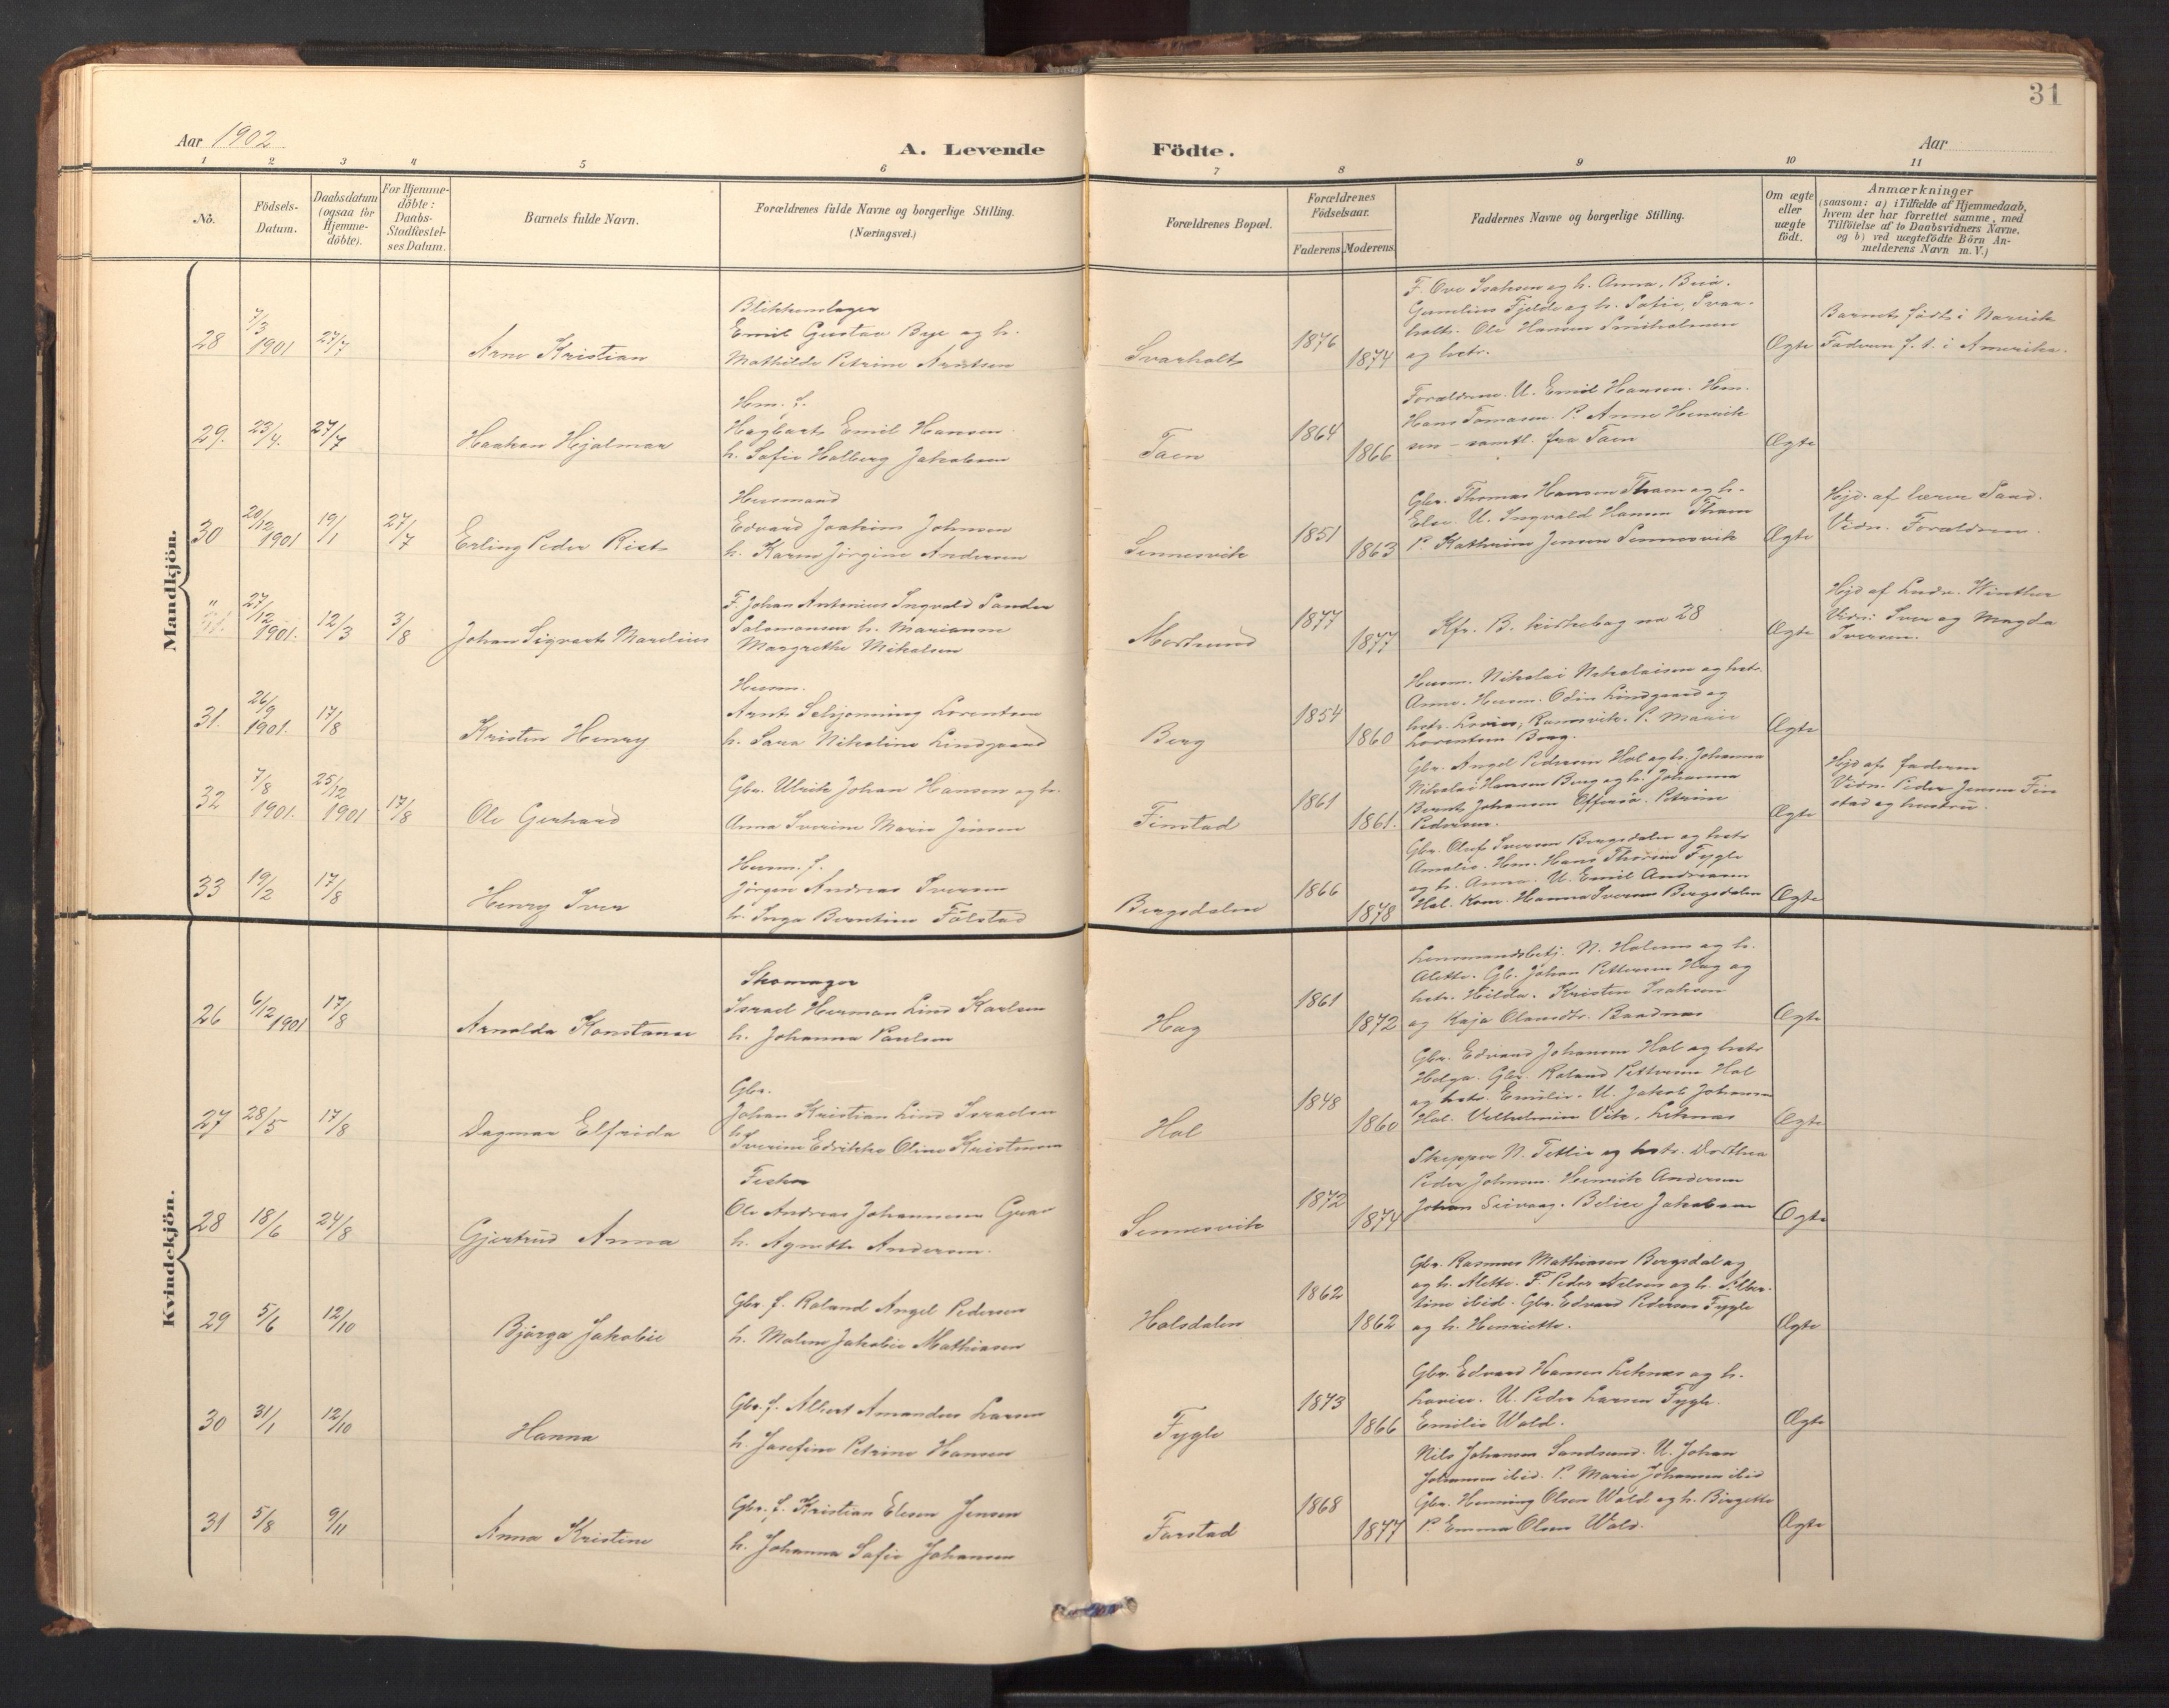 31
Aar 1902
A. Levende Födte.
Aar
1 2 3 4 5 6 7 8 9 10 11
No.
Födsels-
Datum.
Daabsdatum
(ogsaa for
Hjemme-
döbte).
For Hjemme-
döbte:
Daabs-
Stadfæstel-
ses Datum.
Barnets fulde Navn.
Forældrenes fulde Navne og borgerlige Stilling.
(Næringsvei.)
Forældrenes Bopæl.
Forældrenes
Födselsaar.
Faderens Moderens
Faddernes Navne og borgerlige Stilling.
Om ægte
eller
uægte
födt.
Anmærkninger
(saasom: a) i Tilfælde af Hjemmedaab,
hvem der har forrettet samme, med
Tilföielse af to Daabsvidners Navne.
og b) ved uægtefödte Börn An-
melderens Navn m.V.)
Mandkjön.
28 7/3 1901 27/7 Arne Kristian
Blikkenslager
Emil Gustav Bye og h.
Mathilde Petrine Arntsen
Svarholt 1876 1874
F. Ove Isaksen og h. Anna, Buö.
Cornelius Fjelde og h. Sofie, Svar-
holt. Ole Hansen Småholmen
og hstr.
Ægte
Barnet födt i Narvik
Faderen f. t. i Amerika.
29. 23/4. 27/7 Haakon Hjalmar
Hm. f.
Hagbart Emil Hansen
h. Sofie Holberg Jakobsen
Taen 1864 1866
Forældrene. U. Emil Hansen. Hm.
Hans Tomasen. P. Anne Henrik
sen - samtl. fra Taen
Ægte
30 20/12 1901 19/1 27/7 Erling Peder Rist
Husmand
Edvard Joakim Johnsen
h. Karen Jörgine Andersen
Sennesvik 1851 1863
Gbr. Thomas Hansen Tham og h.
Else. U. Ingvald Hansen Tham
P. Kathrine Jensen Sennesvik
Ægte
Hjd. af lærer Sand.
Vidn. Forældrene.
" 27/12 1901. 12/3 3/8 Johan Sigvart Marelius
F. Johan Antonius Ingvald Sander
Salomonsen h. Marianne
Margrethe Mikalsen
Mortsund 1877 1877
Kfr. B. kirkebog no 28
Ægte
Hjd af Landh. Winther
Vidn: Iver og Magda
Iversen.
31. 26/9 1901. 17/8 Kristen Henry
Husm.
Arnt Selijonning Lorentsen
h. Sara Nikoline Lindgaard
Berg 1854 1860
Husm. Nikolai Nikolaisen og hstr.
Anne. Husm. Odin Lindgaard og
hstr. Lovise, Ramsvik. P. Marie
Lorentsen Borg.
Ægte
32 7/8 1901. 25/12 1901 17/8 Ole Gerhard
Gbr. Ulrik Johan Hansen og h.
Anna Iverine Marie Jensen
Finstad 1861 1861.
Gbr. Angel Pedersen Hol og h. Johanna
Nikolai Hansen Berg og h. Johanna
Bernt Johansen Offersö. Petrine
Pedersen.
Ægte
Hjd af faderen
Vidn. Peder Jensen Fin
stad og hustru.
33 19/2 17/8 Henry Iver
Husm. f.
Jörgen Andreas Iversen
h. Inga Berntine Fölstad
Bergsdalen 1866 1878
Gbr. Oluf Iversen Bergsdalen og hstr
Amalie. Hm. Hans Thorsen Fygle
og h. Anna. U. Emil Andreasen
Hol. Kone Hanna Iversen Bergsdalen
Ægte
Kvindekjön.
26 6/12 1901 17/8 Arnolda Konstanse
Skomager
Israel Herman Lind Karlsen
h. Johanna Paulsen
Hag 1861 1872
Lensmandsbetj. N. Halsens og h.
Alette. Gb. Johan Pettersen Hag og
hstr. Hilda. Kristen Isaksen
og Kaja Olausdtr. Baadnes
Ægte
27 28/5 17/8 Dagmar Elfrida
Gbr.
Johan Kristian Lind Israelsen
h.
Iverine Edrikke Oline Kristensen
Hol 1848 1860
Gbr. Edvard Johansen Hol og hstr
Helga. Gbr. Roland Pettersen Hol
og hstr. Emilie. U. Jakob Johansen
Hol. Vilhelmine Vik. Leknæs
Ægte
28 18/6 24/8 Gjertrud Anna
Fisker
Ole Andreas Johannesen Grav
h. Agnette Andersen.
Sennesvik 1872 1874
Skipper N. Tetlie og hstr. Dorthea
Peder Johnsen. Henrik Andersen
Johan Seivaag. Beliee Jakobsen
Ægte
29 5/6 12/10 Bjårga Jakobie
Gbr. f. Roland Angel Pedersen
h. Malene Jakobie Mathiasen
Holsdalen 1862 1862
Gbr. Rasmus Mathiasen Bergsdal og
og h. Alette. F. Peder Nilsen og h. Alber-
tine ibid. Gbr. Edvard Pedersen Fygle
og h. Henriette.
Ægte
30 31/1 12/10 Hanna
Gbr. f. Albert Amandus Larsen
h. Josefine Petrine Hansen
Fygle 1873 1866
Gbr. Edvard Hansen Leknæs og h.
Lovise. U. Peder Larsen Fygle.
Emilie Wold.
Ægte
31 5/8 9/11 Anna Kristine
Gbr. f. Kristian Elesen Jensen
h. Johanna Sofie Johansen
Farstad 1868 1877
Nils Johansen Sandsund. U. Johan
Johansen ibid. P. Marie Johansen ibid
Gbr. Henning Olsen Wold og h. Birgette
P. Emma Olsen Wold.
Ægte